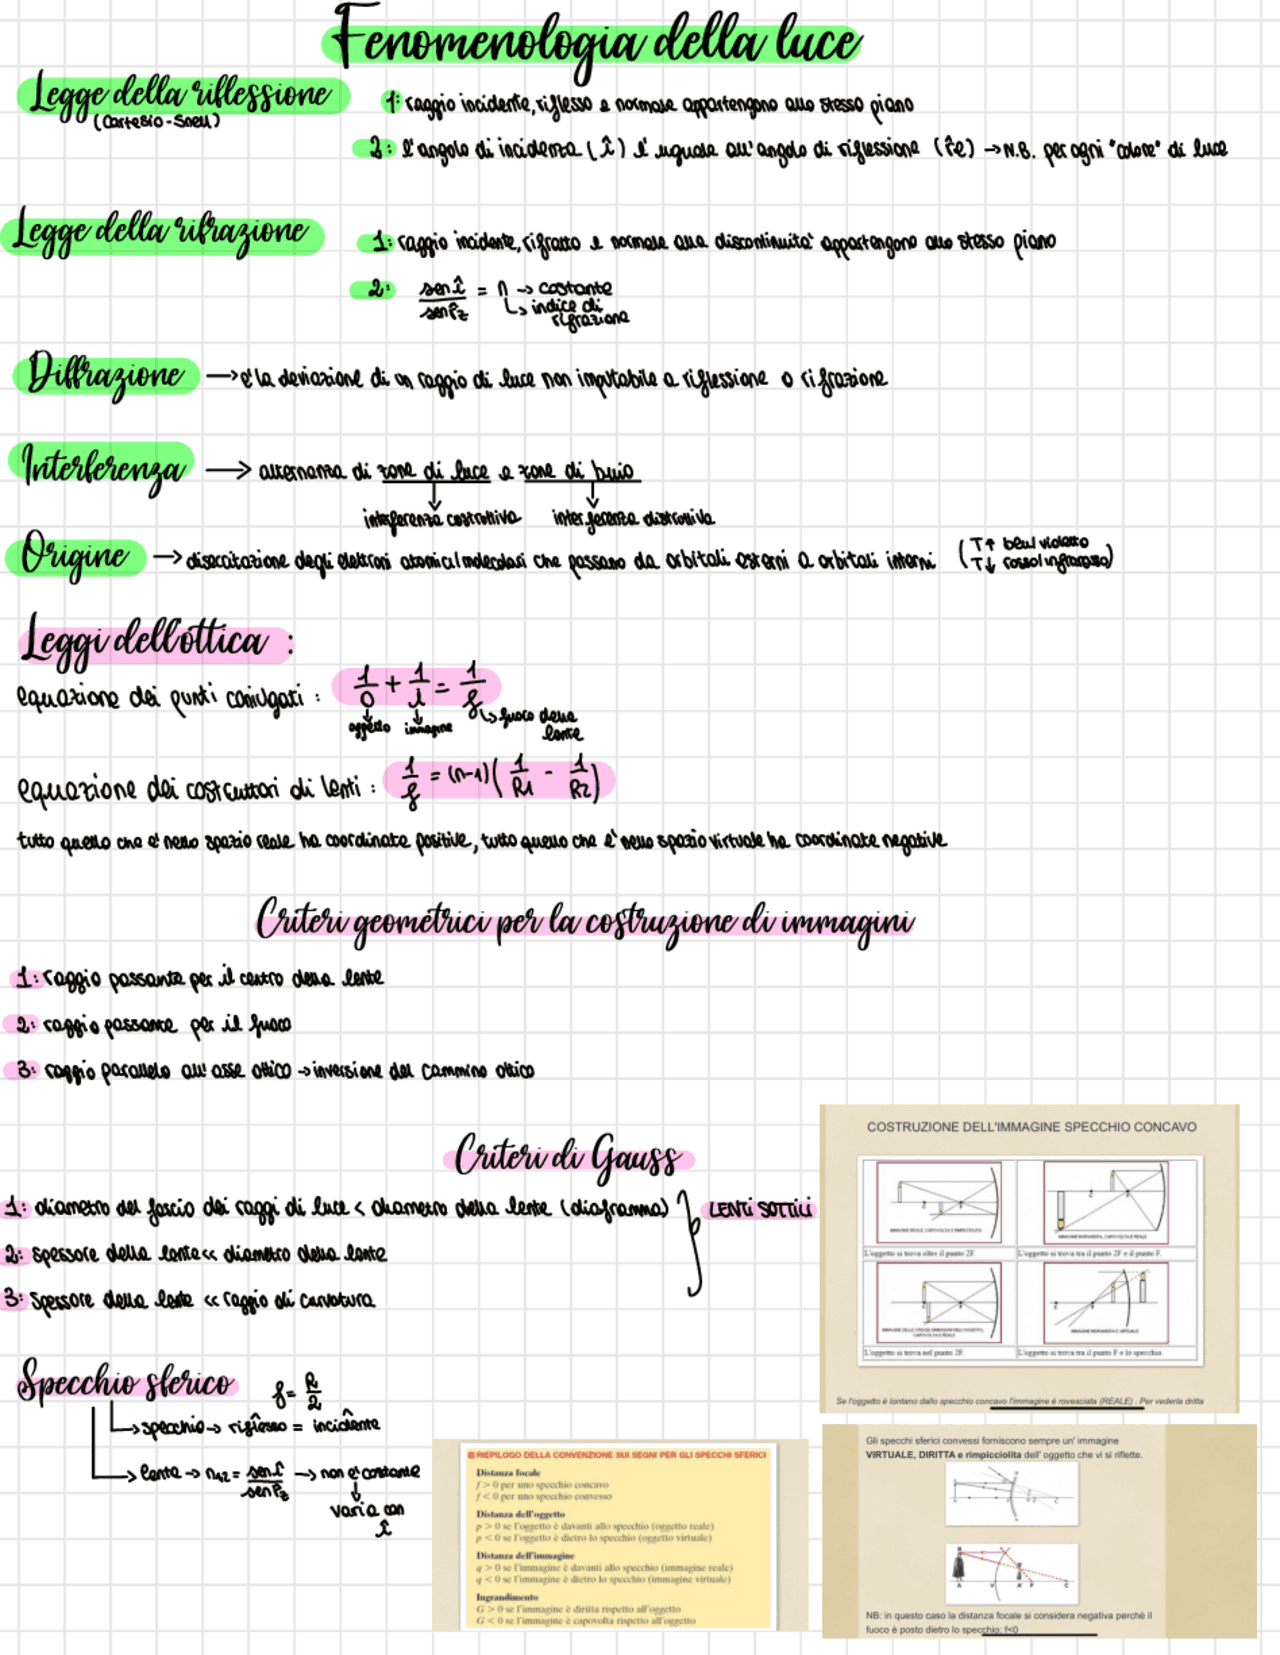 Fenomenologia della luce
Legge della riflessione
(Cartesio-Snell)
1: raggio incidente, riflesso e normale appartengono allo stesso piano
2: l'angolo di incidenza (î) è uguale all'angolo di riflessione (r̂e) → N.B. per ogni "colore" di luce
Legge della rifrazione
1: raggio incidente, rifratto e normale alla discontinuità appartengono allo stesso piano
2: sen î / sen r̂z = n → costante
↳ indice di
rifrazione
Diffrazione → è la deviazione di un raggio di luce non imputabile a riflessione o rifrazione
Interferenza → alternanza di zone di luce e zone di buio
interferenza costruttiva interferenza distruttiva
Origine → disecitazione degli elettroni atomici/molecolari che passano da orbitali esterni a orbitali interni (T↑ blu/violetto
T↓ rosso/infrarosso)
Leggi dell'ottica :
equazione dei punti coniugati : 1/o + 1/i = 1/f
oggetto immagine ↳ fuoco della
lente
equazione dei costruttori di lenti : 1/f = (n-1)(1/R1 - 1/R2)
tutto quello che è nello spazio reale ha coordinate positive, tutto quello che è nello spazio virtuale ha coordinate negative
Criteri geometrici per la costruzione di immagini
1: raggio passante per il centro della lente
2: raggio passante per il fuoco
3: raggio parallelo all'asse ottico → inversione del cammino ottico
Criteri di Gauss
1: diametro del fascio dei raggi di luce < diametro della lente (diaframma)
2: spessore della lente << diametro della lente
3: spessore della lente << raggio di curvatura
LENTI SOTTILI
COSTRUZIONE DELL'IMMAGINE SPECCHIO CONCAVO
IMMAGINE REALE, CAPOVOLTA E RIMPICCIOLITA
IMMAGINE INGRANDITA, CAPOVOLTA E REALE
L'oggetto si trova oltre il punto 2F.
L'oggetto si trova tra il punto 2F e il punto F.
IMMAGINE DELLE STESSE DIMENSIONI DELL'OGGETTO,
CAPOVOLTA E REALE
IMMAGINE INGRANDITA E VIRTUALE
L'oggetto si trova nel punto 2F.
L'oggetto si trova tra il punto F e lo specchio.
Se l'oggetto è lontano dallo specchio concavo l'immagine è rovesciata (REALE) . Per vederla dritta
Specchio sferico f = R/2
→ specchio → riflesso = incidente
→ lente → n12 = sen î / sen r̂z → non è costante
varia con
î
RIEPILOGO DELLA CONVENZIONE SUI SEGNI PER GLI SPECCHI SFERICI
Distanza focale
f > 0 per uno specchio concavo
f < 0 per uno specchio convesso
Distanza dell'oggetto
p > 0 se l'oggetto è davanti allo specchio (oggetto reale)
p < 0 se l'oggetto è dietro lo specchio (oggetto virtuale)
Distanza dell'immagine
q > 0 se l'immagine è davanti allo specchio (immagine reale)
q < 0 se l'immagine è dietro lo specchio (immagine virtuale)
Ingrandimento
G > 0 se l'immagine è diritta rispetto all'oggetto
G < 0 se l'immagine è capovolta rispetto all'oggetto
Gli specchi sferici convessi forniscono sempre un' immagine
VIRTUALE, DIRITTA e rimpicciolita dell' oggetto che vi si riflette.
A V A' F C
NB: in questo caso la distanza focale si considera negativa perchè il
fuoco è posto dietro lo specchio: f<0